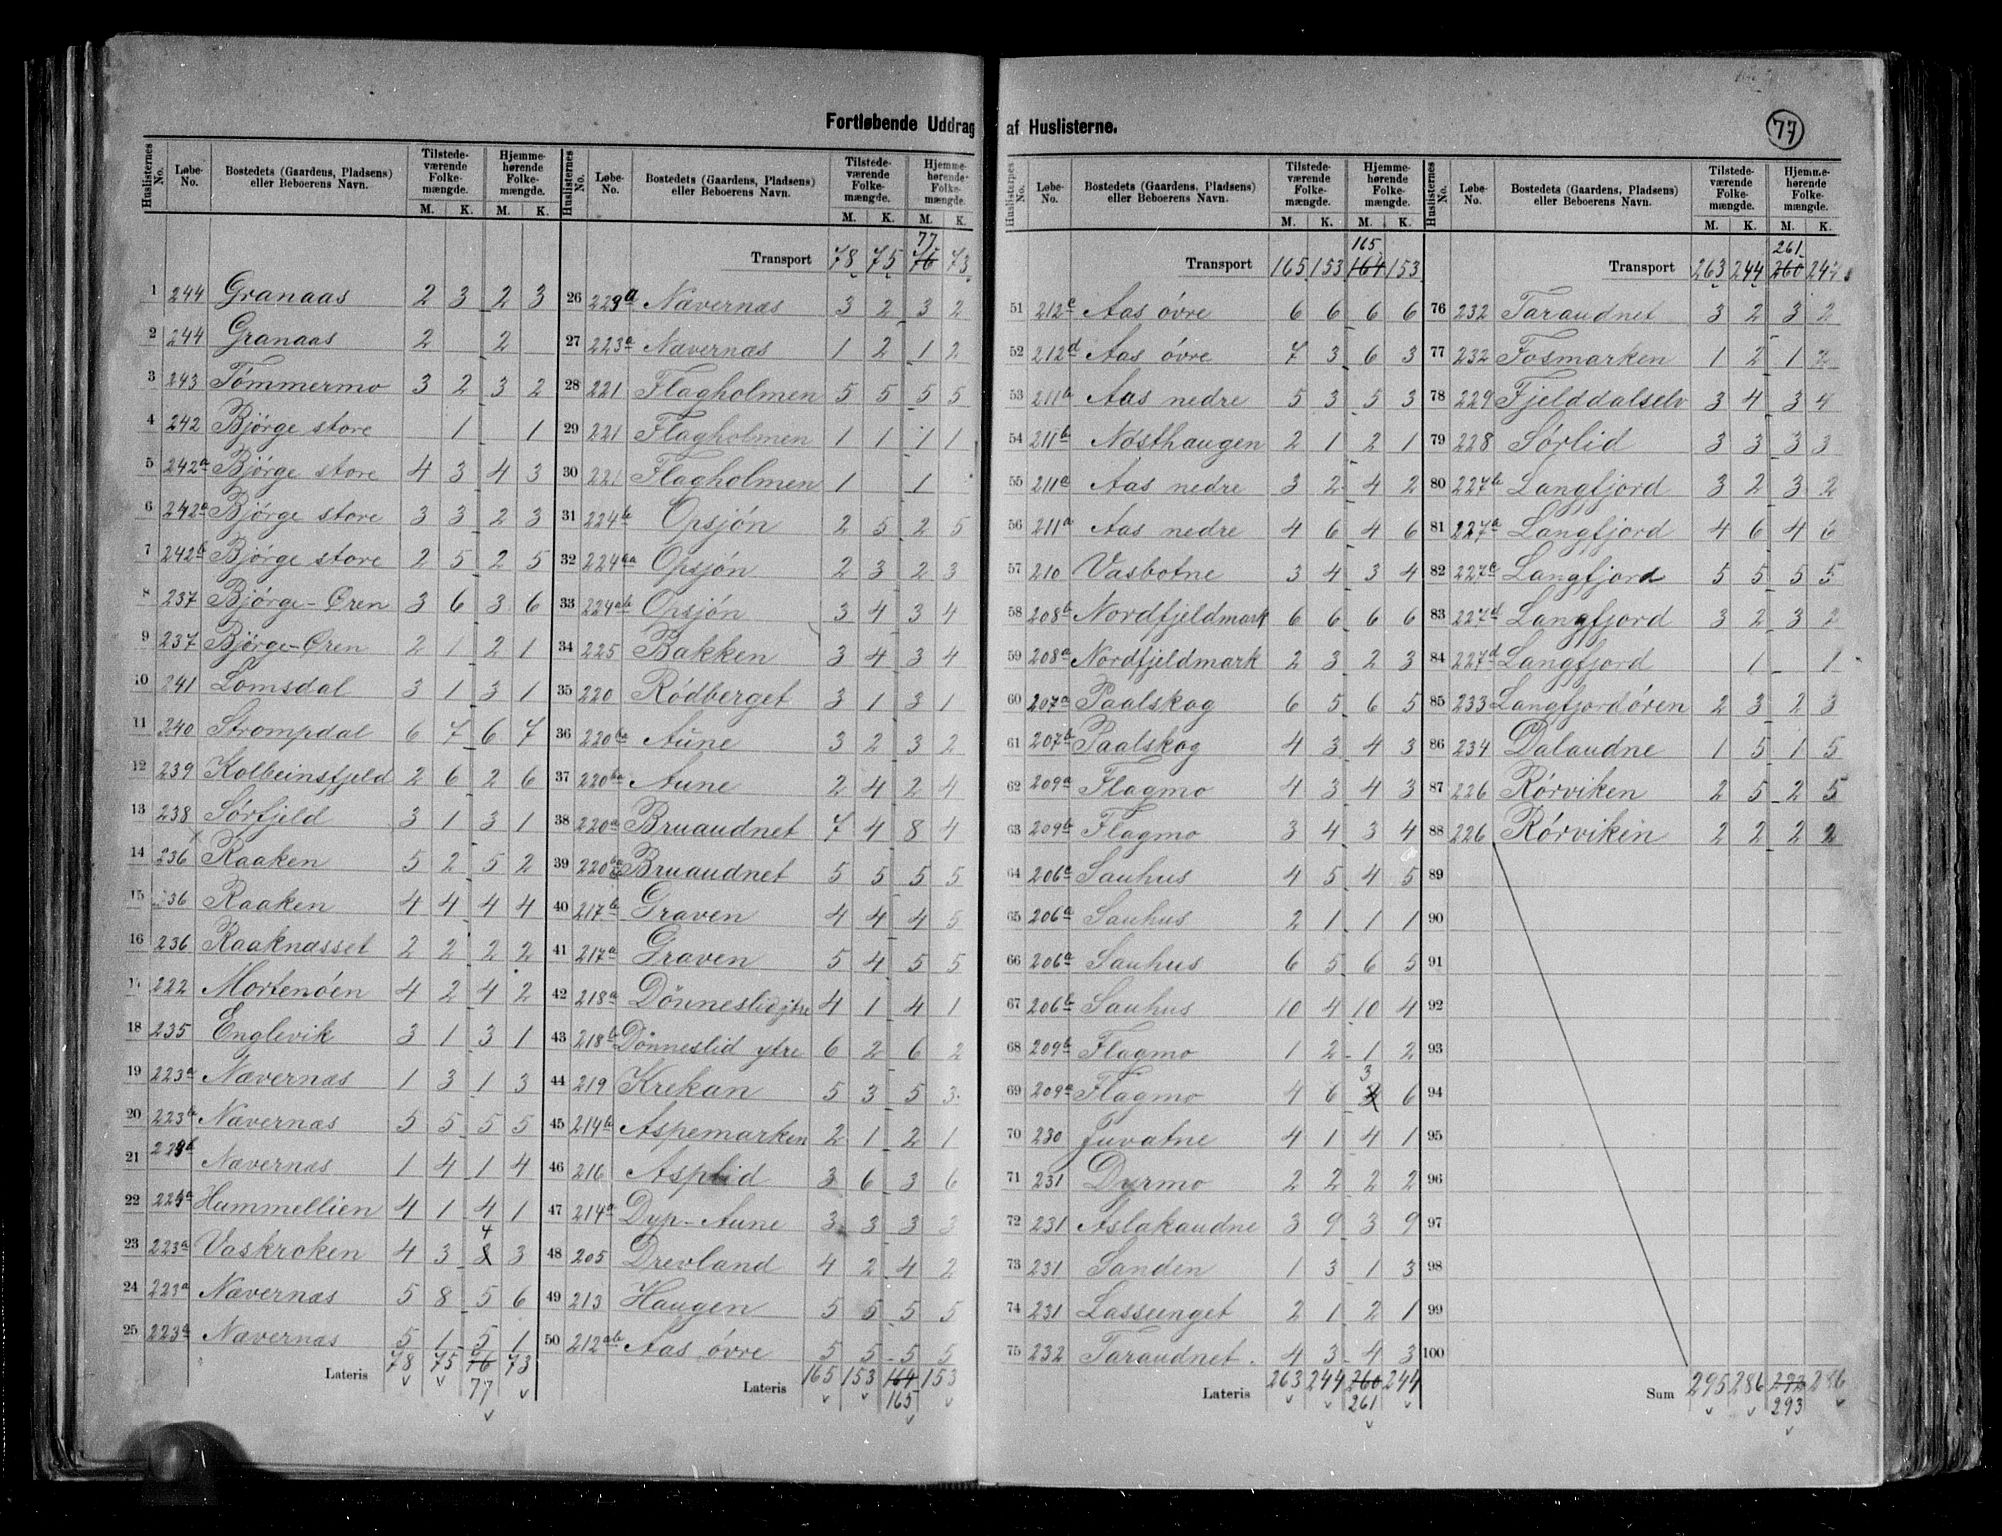 Fortløbende Uddrag af Huslisterne.
77
Huslisternes No. Løbe-No. Bostedets (Gaardens, Pladsens) eller Beboerens Navn. Tilstedeværende Folkemængde. M. K. Hjemmehørende Folkemængde. M. K.
1 244 Granaas 2 3 2 3
2 244 Granaas 2 2
3 243 Tømmermo 3 2 3 2
4 242 Bjørge store 1 1
5 242a Bjørge store 4 3 4 3
6 242a Bjørge store 3 3 2 3
7 242b Bjørge store 2 5 2 5
8 237 Bjørge-Øren 3 6 3 6
9 237 Bjørge-Øren 2 1 2 1
10 241 Lomsdal 3 1 3 1
11 240 Strompdal 6 7 6 7
12 239 Kolbeinsfjeld 2 6 2 6
13 238 Sørfjeld 3 1 3 1
14 236 Raaken 5 2 5 2
15 236 Raaken 4 4 4 4
16 236 Raaknæsset 2 2 2 2
17 222 Mortenøen 4 2 4 2
18 235 Englevik 3 1 3 1
19 223a Nævernæs 1 3 1 3
20 223b Nævernæs 5 5 5 5
21 223b Nævernæs 1 4 1 4
22 223a Hummellien 4 1 4 1
23 223a Vaskroken 4 3 4 3
24 223a Nævernæs 5 8 5 6
25 223a Nævernæs 5 1 5 1
Lateris 78 75 76 73
77
Huslisternes No. Løbe-No. Bostedets (Gaardens, Pladsens) eller Beboerens Navn. Tilstedeværende Folkemængde. M. K. Hjemmehørende Folkemængde. M. K.
77
Transport 78 75 76 73
26 223a Nævernæs 3 2 3 2
27 223a Nævernæs 1 2 1 2
28 221 Flagholmen 5 5 5 5
29 221 Flagholmen 1 1 1 1
30 221 Flagholmen 1 1
31 224b Opsjøn 2 5 2 5
32 224aa Opsjøn 2 3 2 3
33 224ab Opsjøn 3 4 3 4
34 225 Bakken 3 4 3 4
35 220 Rødberget 3 1 3 1
36 220ba Aune 3 2 3 2
37 220ba Aune 2 4 2 4
38 220a Bruaudnet 7 4 8 4
39 220ba Bruaudnet 5 5 5 5
40 217b Graven 4 4 4 5
41 217a Graven 5 4 5 5
42 218a Dønneslid ytre 4 1 4 1
43 218b Dønneslid ytre 6 2 6 2
44 219 Krekan 5 3 5 3
45 214b Aspemarken 2 1 2 1
46 216 Asplid 3 6 3 6
47 214a Dyp-Aune 3 3 3 3
48 205 Drevland 4 2 4 2
49 213 Haugen 5 5 5 5
50 212ab Aas øvre 5 5 5 5
Lateris 165 153 164 153
165
Huslisternes No. Løbe-No. Bostedets (Gaardens, Pladsens) eller Beboerens Navn. Tilstedeværende Folkemængde. M. K. Hjemmehørende Folkemængde. M. K.
165
Transport 165 153 164 153
51 212c Aas øvre 6 6 6 6
52 212d Aas øvre 7 3 6 3
53 211b Aas nedre 5 3 5 3
54 211b Nøsthaugen 2 1 2 1
55 211a Aas nedre 3 2 4 2
56 211a Aas nedre 4 6 4 6
57 210 Vasbotne 3 4 3 4
58 208b Nordfjeldmark 6 6 6 6
59 208a Nordfjeldmark 2 3 2 3
60 207a Paalskog 6 5 6 5
61 207b Paalskog 4 3 4 3
62 209a Flagmo 4 3 4 3
63 209b Flagmo 3 4 3 4
64 206a Sauhus 4 5 4 5
65 206a Sauhus 2 1 1 1
66 206a Sauhus 6 5 6 5
67 206b Sauhus 10 4 10 4
68 209b Flagmo 1 2 1 2
69 209a Flagmo 4 6 3 6
70 230 Juvatne 4 1 4 1
71 231 Dyrmo 2 2 2 2
72 231 Aslakaudne 3 9 3 9
73 231 Sanden 1 3 1 3
74 231 Lasseenget 2 1 2 1
75 232 Taraudnet 4 3 4 3
Lateris 263 244 260 244
261
Huslisternes No. Løbe-No. Bostedets (Gaardens, Pladsens) eller Beboerens Navn. Tilstedeværende Folkemængde. M. K. Hjemmehørende Folkemængde. M. K.
261
Transport 263 244 260 244
76 232 Taraudnet 3 2 3 2
77 232 Fosmarken 1 2 1 2
78 229 Fjelddalselv 3 4 3 4
79 228 Sørlid 3 3 3 3
80 227b Langfjord 3 2 3 2
81 227a Langfjord 4 6 4 6
82 227c Langfjord 5 5 5 5
83 227d Langfjord 3 2 3 2
84 227d Langfjord 1 1
85 233 Langfjordøren 2 3 2 3
86 234 Dalaudne 1 5 1 5
87 226 Rørviken 2 5 2 5
88 226 Rørviken 2 2 2 2
89
90
91
92
93
94
95
96
97
98
99
100
Sum 295 286 292 286
293